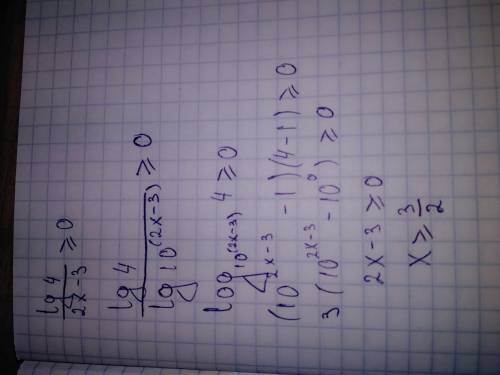 lg 4 / 2x-3 ≥ 0
lg 4 / lg 10^(2x-3) ≥ 0
log_10^(2x-3) 4 ≥ 0
(10^2x-3 - 1)(4-1) ≥ 0
3(10^2x-3 - 10^0) ≥ 0
2x-3 ≥ 0
x ≥ 3/2